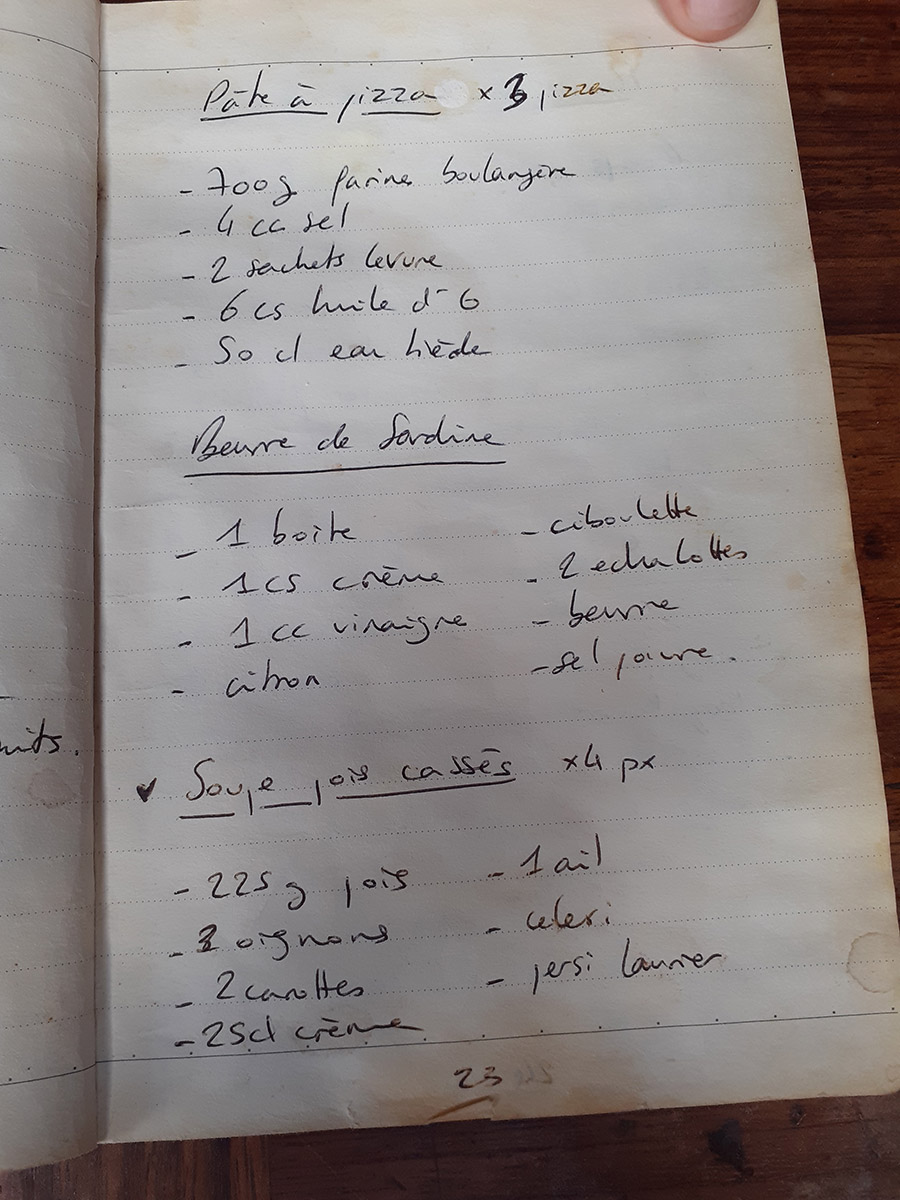 Pâte à pizza x 3 pizza
- 700g farine boulangère
- 4 cc sel
- 2 sachets levure
- 6 cs huile d'O
- 50 cl eau tiède
Beurre de Sardine
- 1 boite
- 1 cs crème
- 1 cc vinaigre
- citron
- ciboulette
- 2 echalottes
- beurre
- sel poivre.
♥ Soupe pois cassés x4 px
- 225 g pois
- 3 oignons
- 2 carottes
- 25cl crème
- 1 ail
- celeri
- persi laurier
23